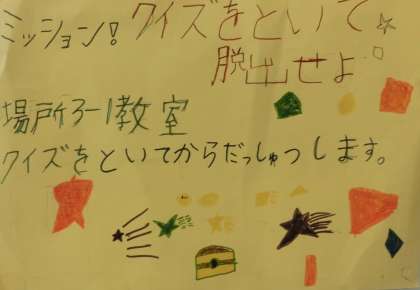 ミッション!クイズをといて
脱出せよ
場所3-1教室
クイズをといてからだっしゅつします。